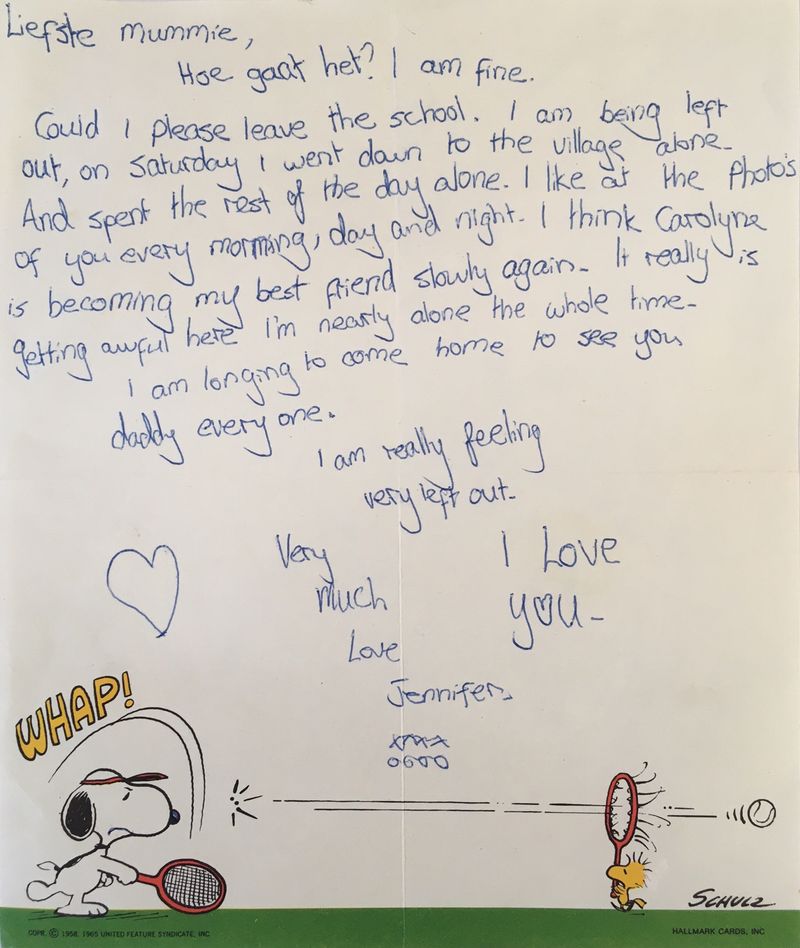 Liefste mummie,
Hoe gaat het? I am fine.
Could I please leave the school. I am being left
out, on Saturday I went down to the village alone.
And spent the rest of the day alone. I like at the Photo's
of you every morning, day and night. I think Carolyne
is becoming my best friend slowly again. It really is
getting awful here I'm nearly alone the whole time.
I am longing to come home to see you
daddy every one.
I am really feeling
very left out.
Very
much
Love
I Love
you.
Jennifer.
xxxx
oooo
WHAP!
SCHULZ
COPR. © 1958, 1965 UNITED FEATURE SYNDICATE, INC.
HALLMARK CARDS, INC